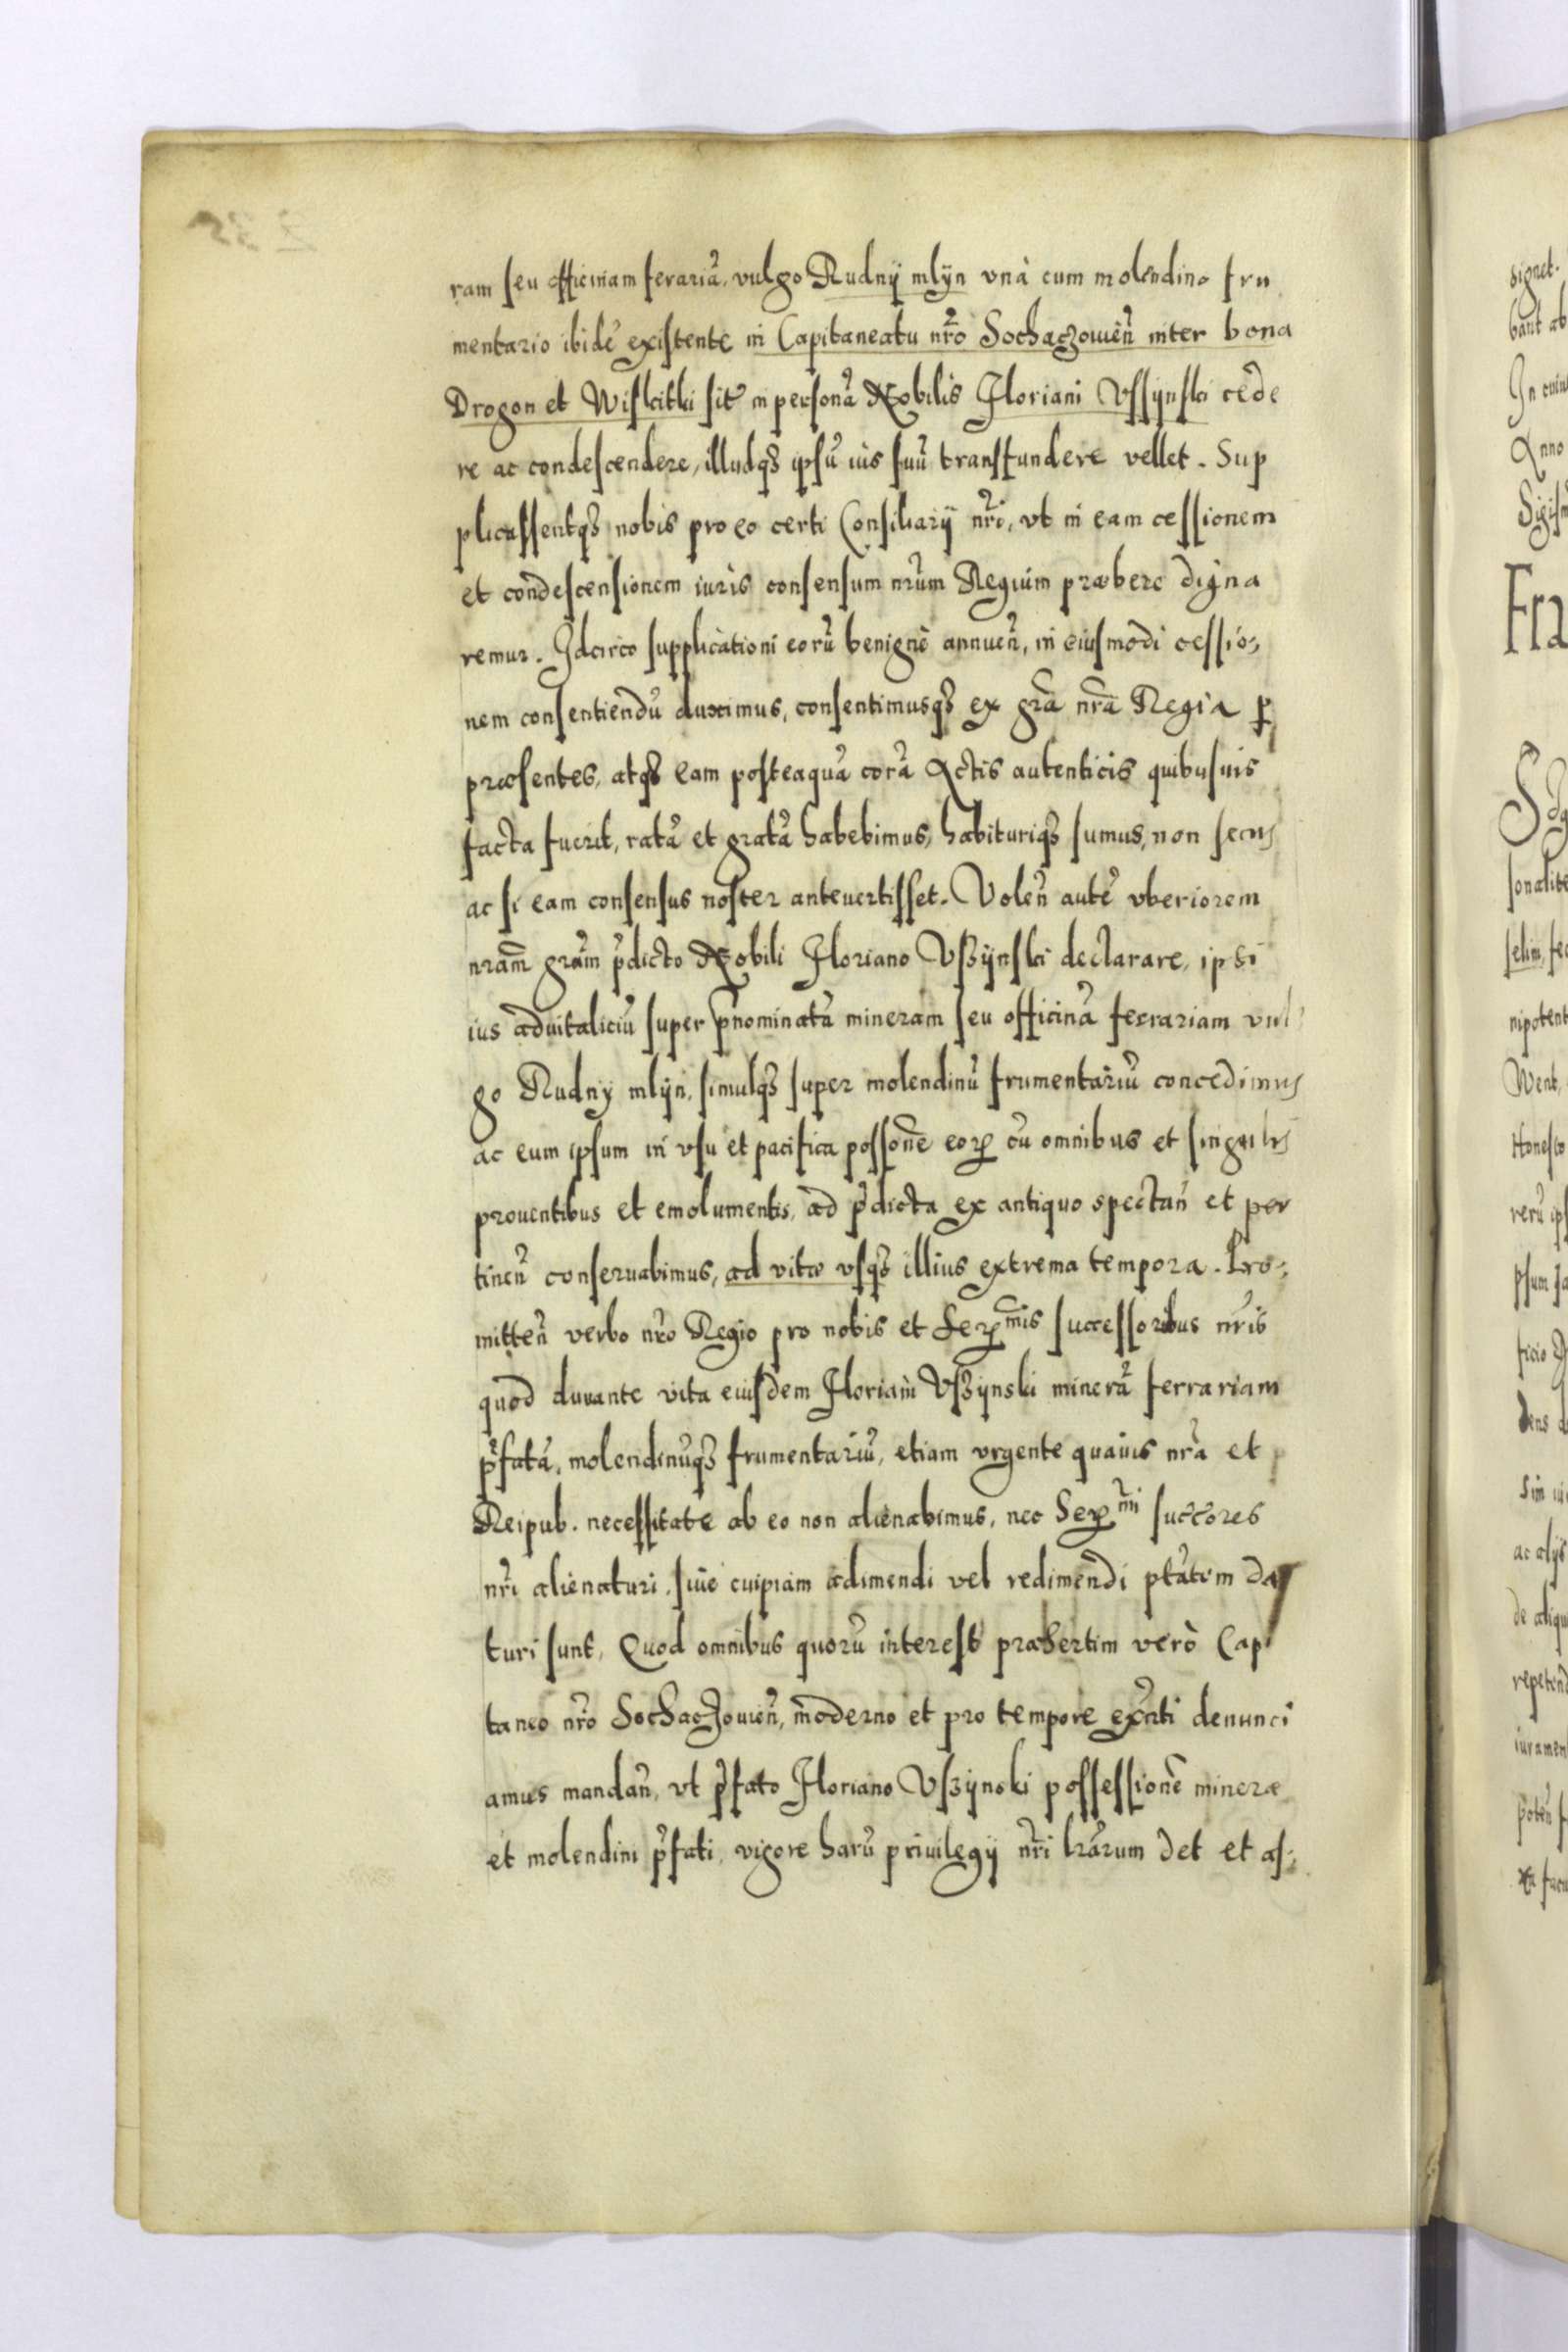 ram seu officinam ferariã, vulgo Rudnÿ mlÿn vnà cum molendino fru
mentario ibidẽ existente in Capitaneatu nr̃o Sochaczouieñ inter bona
Drogon et Wiskitki sit̃ in personã Nobilis Floriani Vssÿnski cede
re ac condescendere, illudq3 ipsũ ius suũ transfundere vellet. Sup
plicassentq3 nobis pro eo certi Consiliarÿ nr̃i, vt in eam cessionem
et condescensionem iuris consensum nrũm Regium præbere digna
remur. Idcirco supplicationi eorũ benignè annueñ, in eiusmodi cessio,
nem consentiendũ duximus, consentimusq3 ex gr̃a nr̃a Regia ꝑ
præsentes, atq3 eam posteaquã corã Actis autenticis quibusuis
facta fuerit, ratã et gratã habebimus, habituriq3 sumus, non secus
ac si eam consensus noster anteuertisset. Voleñ autẽ vberiorem
nrãm grãm p̃dicto Nobili Floriano Vszÿnski declarare, ipsi
ius aduitaliciũ super p̃nominatã mineram seu officinã ferrariam vul
go Rudnÿ mlÿn, simulq3 super molendinũ frumentariũ concedimus
ac eum ipsum in vsu et pacifica possonẽ eoꝝ cũ omnibus et singulis
prouentibus et emolumentis, ad p̃dicta ex antiquo spectañ et per
tineñ conseruabimus, ad vitæ vsq3 illius extrema tempora. Pro,
mitteñ verbo nr̃o Regio pro nobis et Serꝫmis successoribus nr̃is
quod durante vita eiusdem Floriani Vszÿnski minerã ferrariam
p̃fatã, molendinũq3 frumentariũ, etiam vrgente quauis nr̃a et
Reipub. necessitate ab eo non alienabimus, nec Serꝫmi succ̃ores
nr̃i alienaturi, siue cuipiam adimendi vel redimendi ptãtem da
turi sunt, Quod omnibus quorũ interest præsertim verò Capi
taneo nr̃o Sochaczouieñ, moderno et pro tempore exñti denunci
amus mandañ, vt p̃fato Floriano Vszÿnski possessionẽ mineræ
et molendini p̃fati, vigore harũ priuilegÿ nr̃i lrãrum det et as,
signet.
bant ab
Anno
Fra
sonalite
nipotent
Went,
psum
ficio
ac alÿs
de aliqu
repetend
iuramen